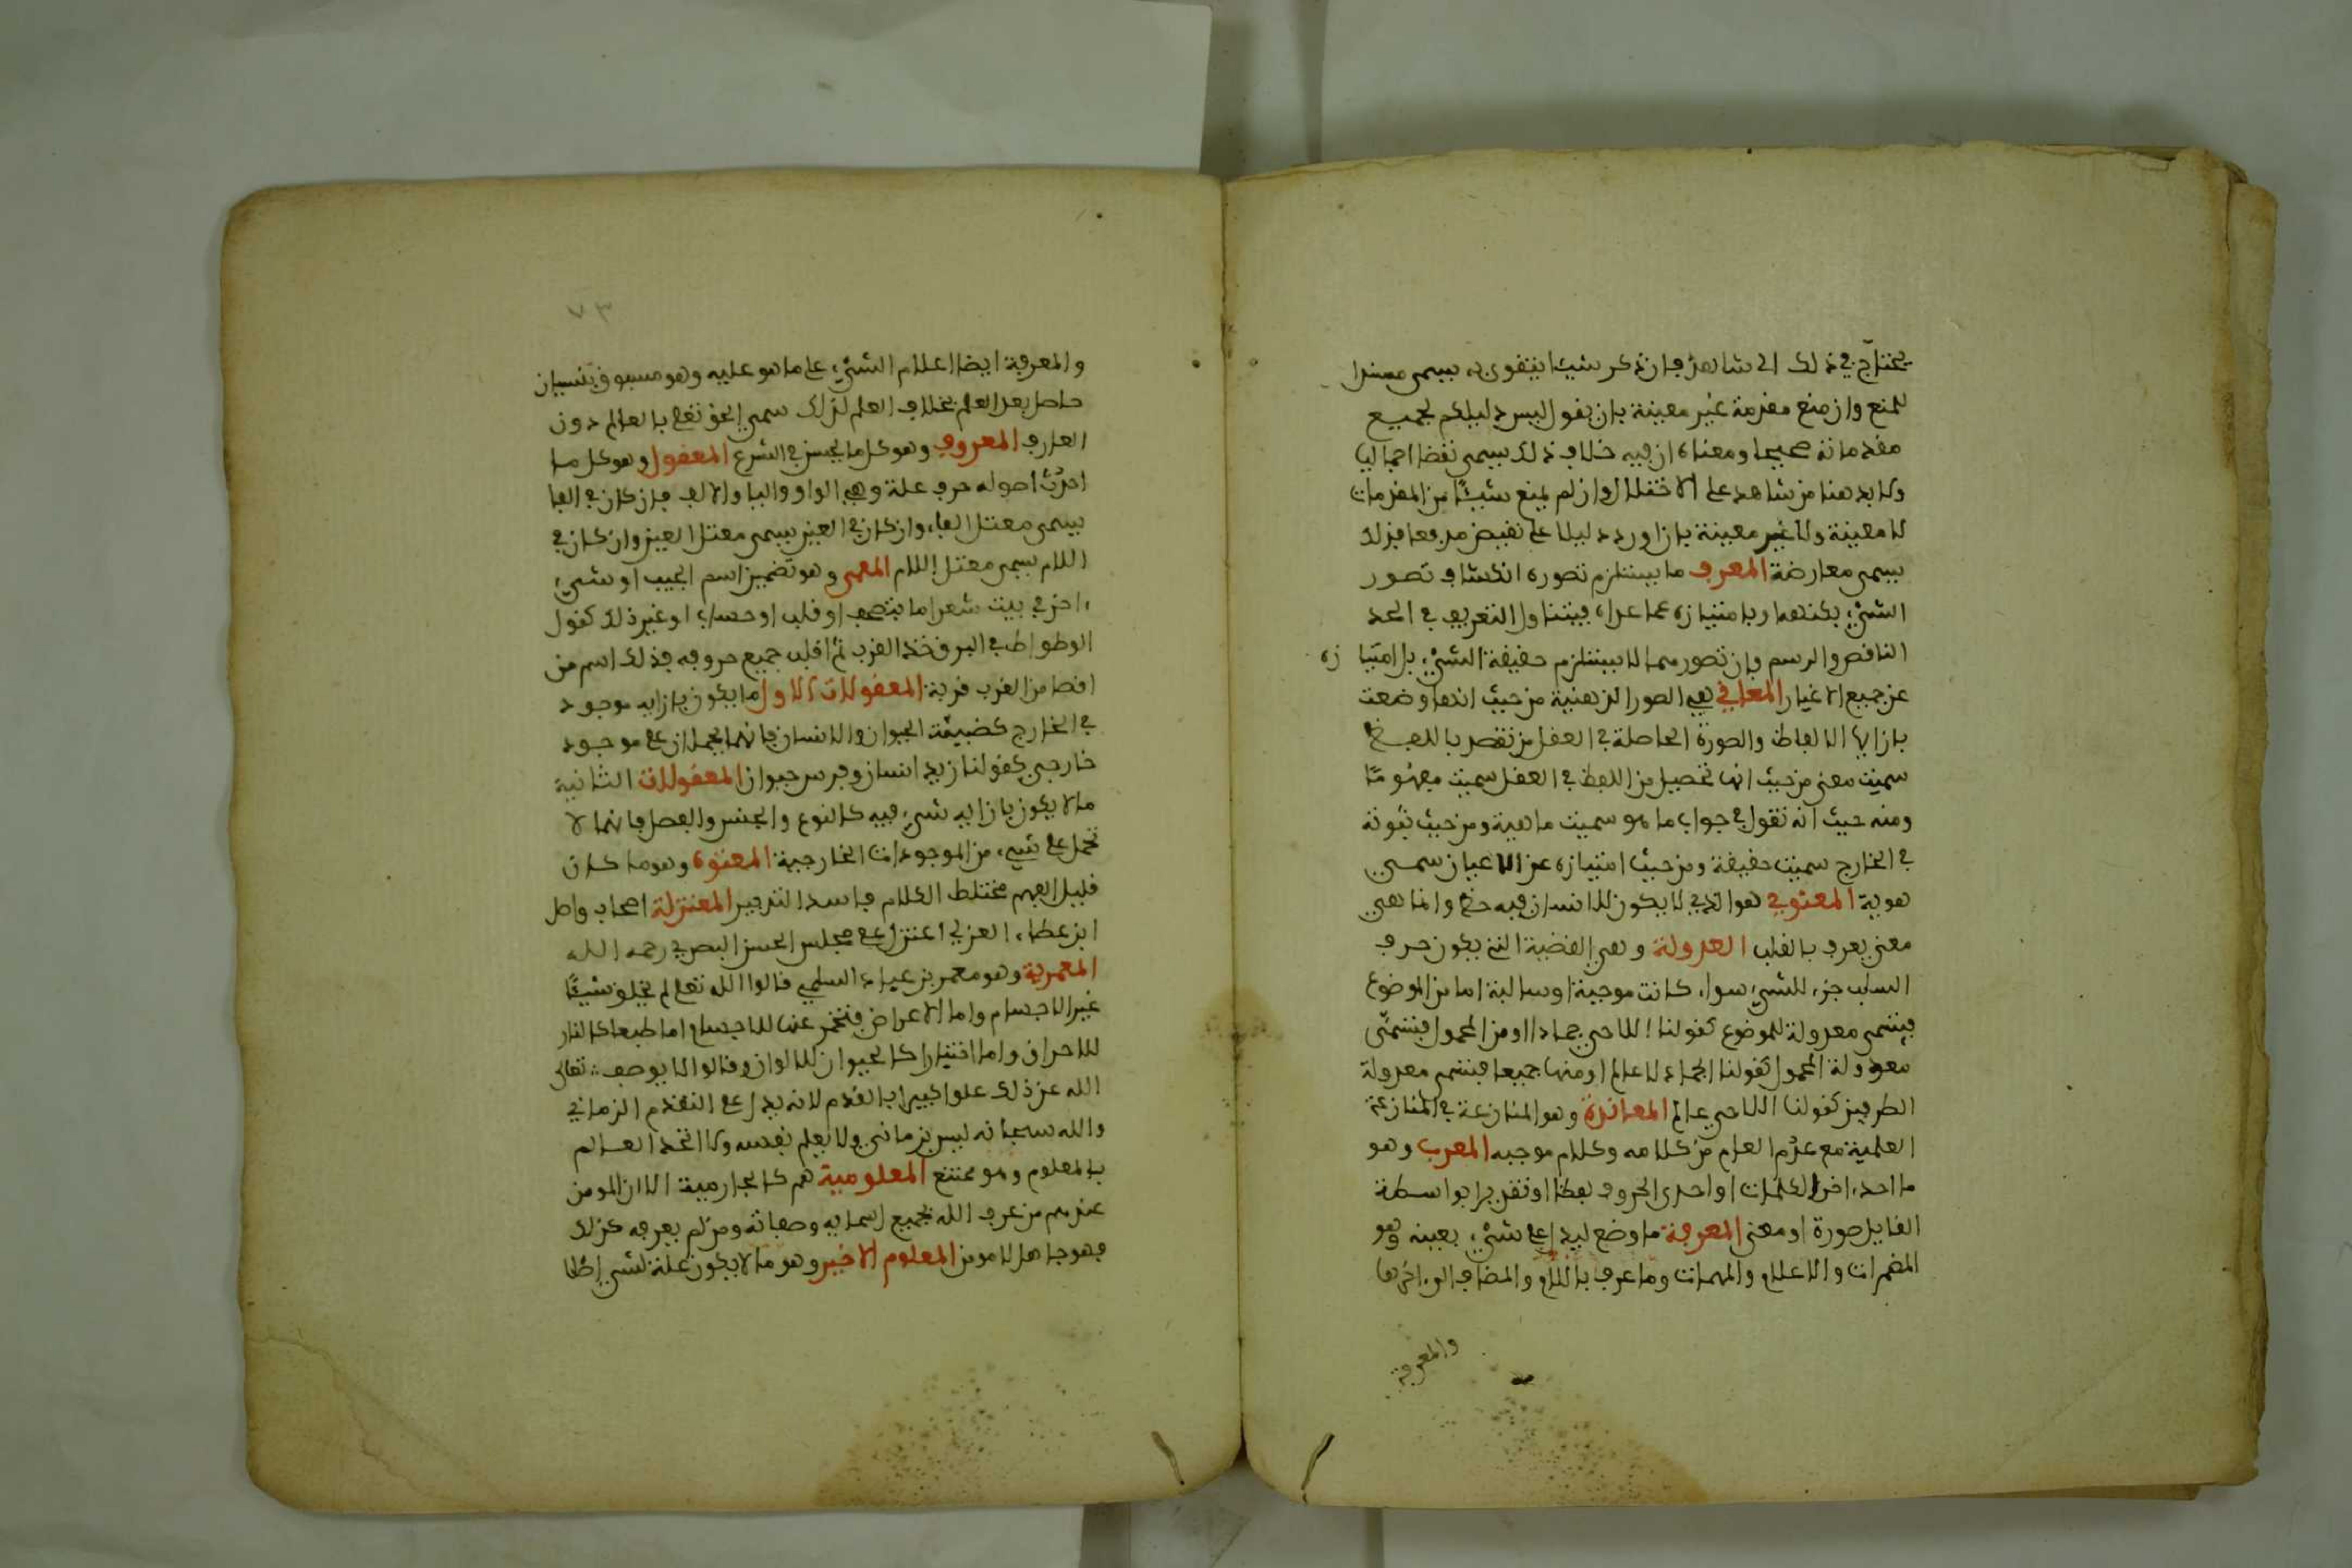 يحتاج في ذلك الى شاهد فان ذكر شيئا يتقوى به يسمى سندا
للمنع وان منع مقدمة غير معينة بان يقول ليس دليلكم بجميع
مقدماته صحيحا ومعناه ان فيه خلاف ذلك يسمى نقضا اجماليا
ولا بد هنا من شاهد على الاختلال وان لم يمنع شيئا من المقدمات
لا معينة ولا غير معينة بان اورد دليلا على نقيض مدعا فذلك
يسمى معارضة المعرف ما يستلزم تصوره انكشاف تصور
الشيء بكنهه او بامتيازه عما عداه فيتناول التعريف في الحد
الناقص والرسم وان تصورهما لا يستلزم حقيقة الشيء بل امتيا زه
عن جميع الاغيار المعاني هي الصور الذهنية من حيث انها وضعت
بازايها الالفاظ والصورة الحاصلة في العقل من تقصد باللفظ
سميت معنى من حيث انها تحصيل من اللفظ في العقل سميت مفهوما
ومنه حيث انه تقول في جواب ما هو سميت ماهية ومن حيث ثبوته
في الخارج سميت حقيقة ومن حيث امتيازه عن الاعيان سمي
هوية المعنوي هو الذي لا يكون للانسان فيه حظ وانما هي
معنى يعرف بالقلب العدولة وهي القضية التي يكون حرف
السلب جزء للشيء سواء كانت موجبة او سالبة اما من الموضوع
فيتسمى معدولة للموضوع كقولنا اللاحي جماد او من المحمول فتسمى
معدولة المحمول كقولنا الجماد لا عالم او منها جميعا فتسمى معدولة
الطرفين كقولنا اللاحي عالم المعاندة وهو المنازعة في المنازعة
العلمية مع عدم العلم من كلامه وكلام موجبه المعرب وهو
ما احد اخر الكلمات او احدى الحروف لفظا او تقديرا بواسطة
القايل صورة او معنى المعرفة ما وضع ليدل على شيء بعينه وهو
المضمرات والاعلام والمبهمات وما عرف باللام والمضاف الى احدها
والمعرفة
٧٣
والمعرفة ايضا اعلام الشيء على ما هو عليه وهو مسبوق بنسيان
حاصل بعد العلم بخلاف العلم لذلك سمي الحق تعلى بالعالم دون
العارف المعروف وهو كل ما يحسن في الشرع المعقول وهو كل ما
احدث اصوله حرف علة وهي الواو واليا والالف فان كان في الفا
يسمى معتل الفاء وان كان في العين يسمى معتل العين وان كان في
اللام يسمى معتل اللام المعمى وهو تضمين اسم الحبيب او شيء
اخر في بيت شعر اما بتصحيف او قلب او حساب او غير ذلك كقول
الوطواط في البرق خذ القرب ثم اقلب جميع حروفه فذلك اسم من
اقصا من القرب قربة المعقولات الاول ما يكون بازايه موجود
في الخارج كضبيعة الحيوان والانسان فانهما يحملان على موجود
خارجي كقولنا زيد انسان وفرس حيوان المعقولات الثانية
ما لا يكون بازايه شيء فيه كالنوع والجنس والفصل فانها لا
تحمل على شيء من الموجودات الخارجية المعتوه وهو ما كان
قليل الفهم مختلط الكلام فاسد التدبير المعتزلة اصحاب واصل
ابن عطاء الغزلي اعتزل على مجلس الحسن البصري رحمه الله
المعمرية وهو معمر بن عباد السلمي قالوا الله تعلى لم يخلق شيئا
غير الاجسام واما الاعراض فتختر عنها الاجسام اما طبعا كالنار
للاحراق واما اختيارا كالحيوان للالوان وقالوا لا يوصف تعالى
الله عن ذلك علوا كبيرا بالقدم لانه يدل على التقدم الزماني
والله سبحانه ليس بزماني ولا يعلم نفسه والا اتحد العالم
بالمعلوم وهو ممتنع المعلومية هم كالجارمية الا ان المومن
عندهم من عرف الله بجميع اسمايه وصفاته ومن لم يعرفه كذلك
فهو جاهل لا مومن المعلوم الاخير وهو ما لا يكون علة لشيء اصلا